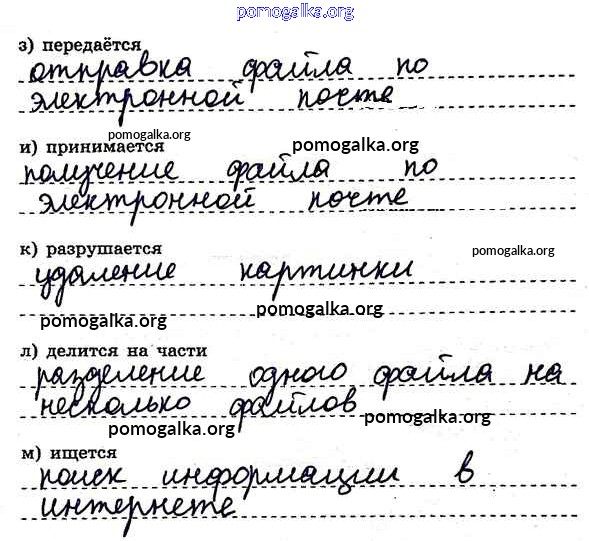 pomogalka.org
з) передаётся
отправка файла по
электронной почте
pomogalka.org
и) принимается pomogalka.org
получение файла по
электронной почте
к) разрушается pomogalka.org
удаление картинки
pomogalka.org pomogalka.org
л) делится на части
разделение одного файла на
несколько файлов
pomogalka.org pomogalka.org
м) ищется
поиск информации в
интернете